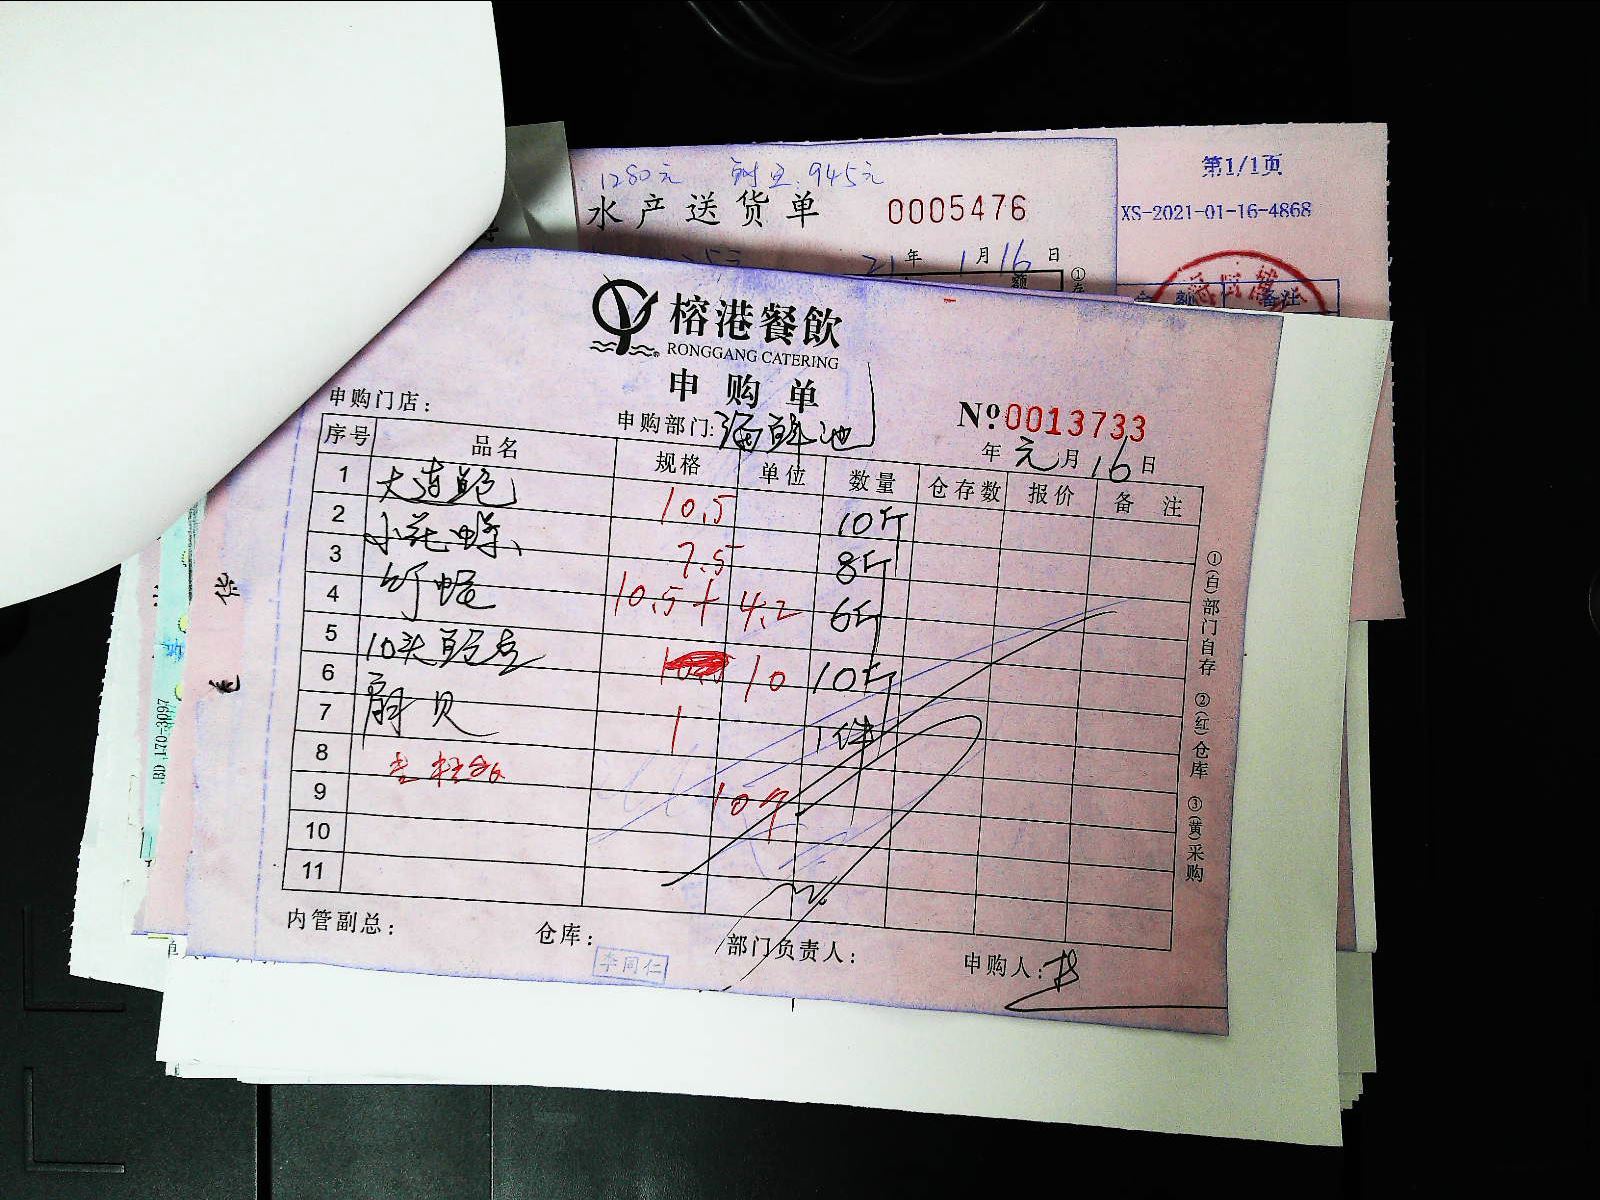 第1/1页
1280元 945元
水产送货单 0005476
XS-2021-01-16-4868
21年1月16日
备注
榕港餐飲
RONGGANG CATERING
申购单
申购门店：
申购部门：海鲜池
Nº0013733
年元月16日
序号 品名 规格 单位 数量 仓存数 报价 备 注
1 大连鲍 10.5 10斤
2 小花螺 7.5 8斤
3 竹蛏 10.5+4.2 6斤
4 10头 10 10斤
5 扇贝 1 1件
6
7
8 10个
9
10
11
内管副总：
仓库：
李同仁
部门负责人：
申购人：
①(白)部门自存 ②(红)仓库 ③(黄)采购
BD 170-3097